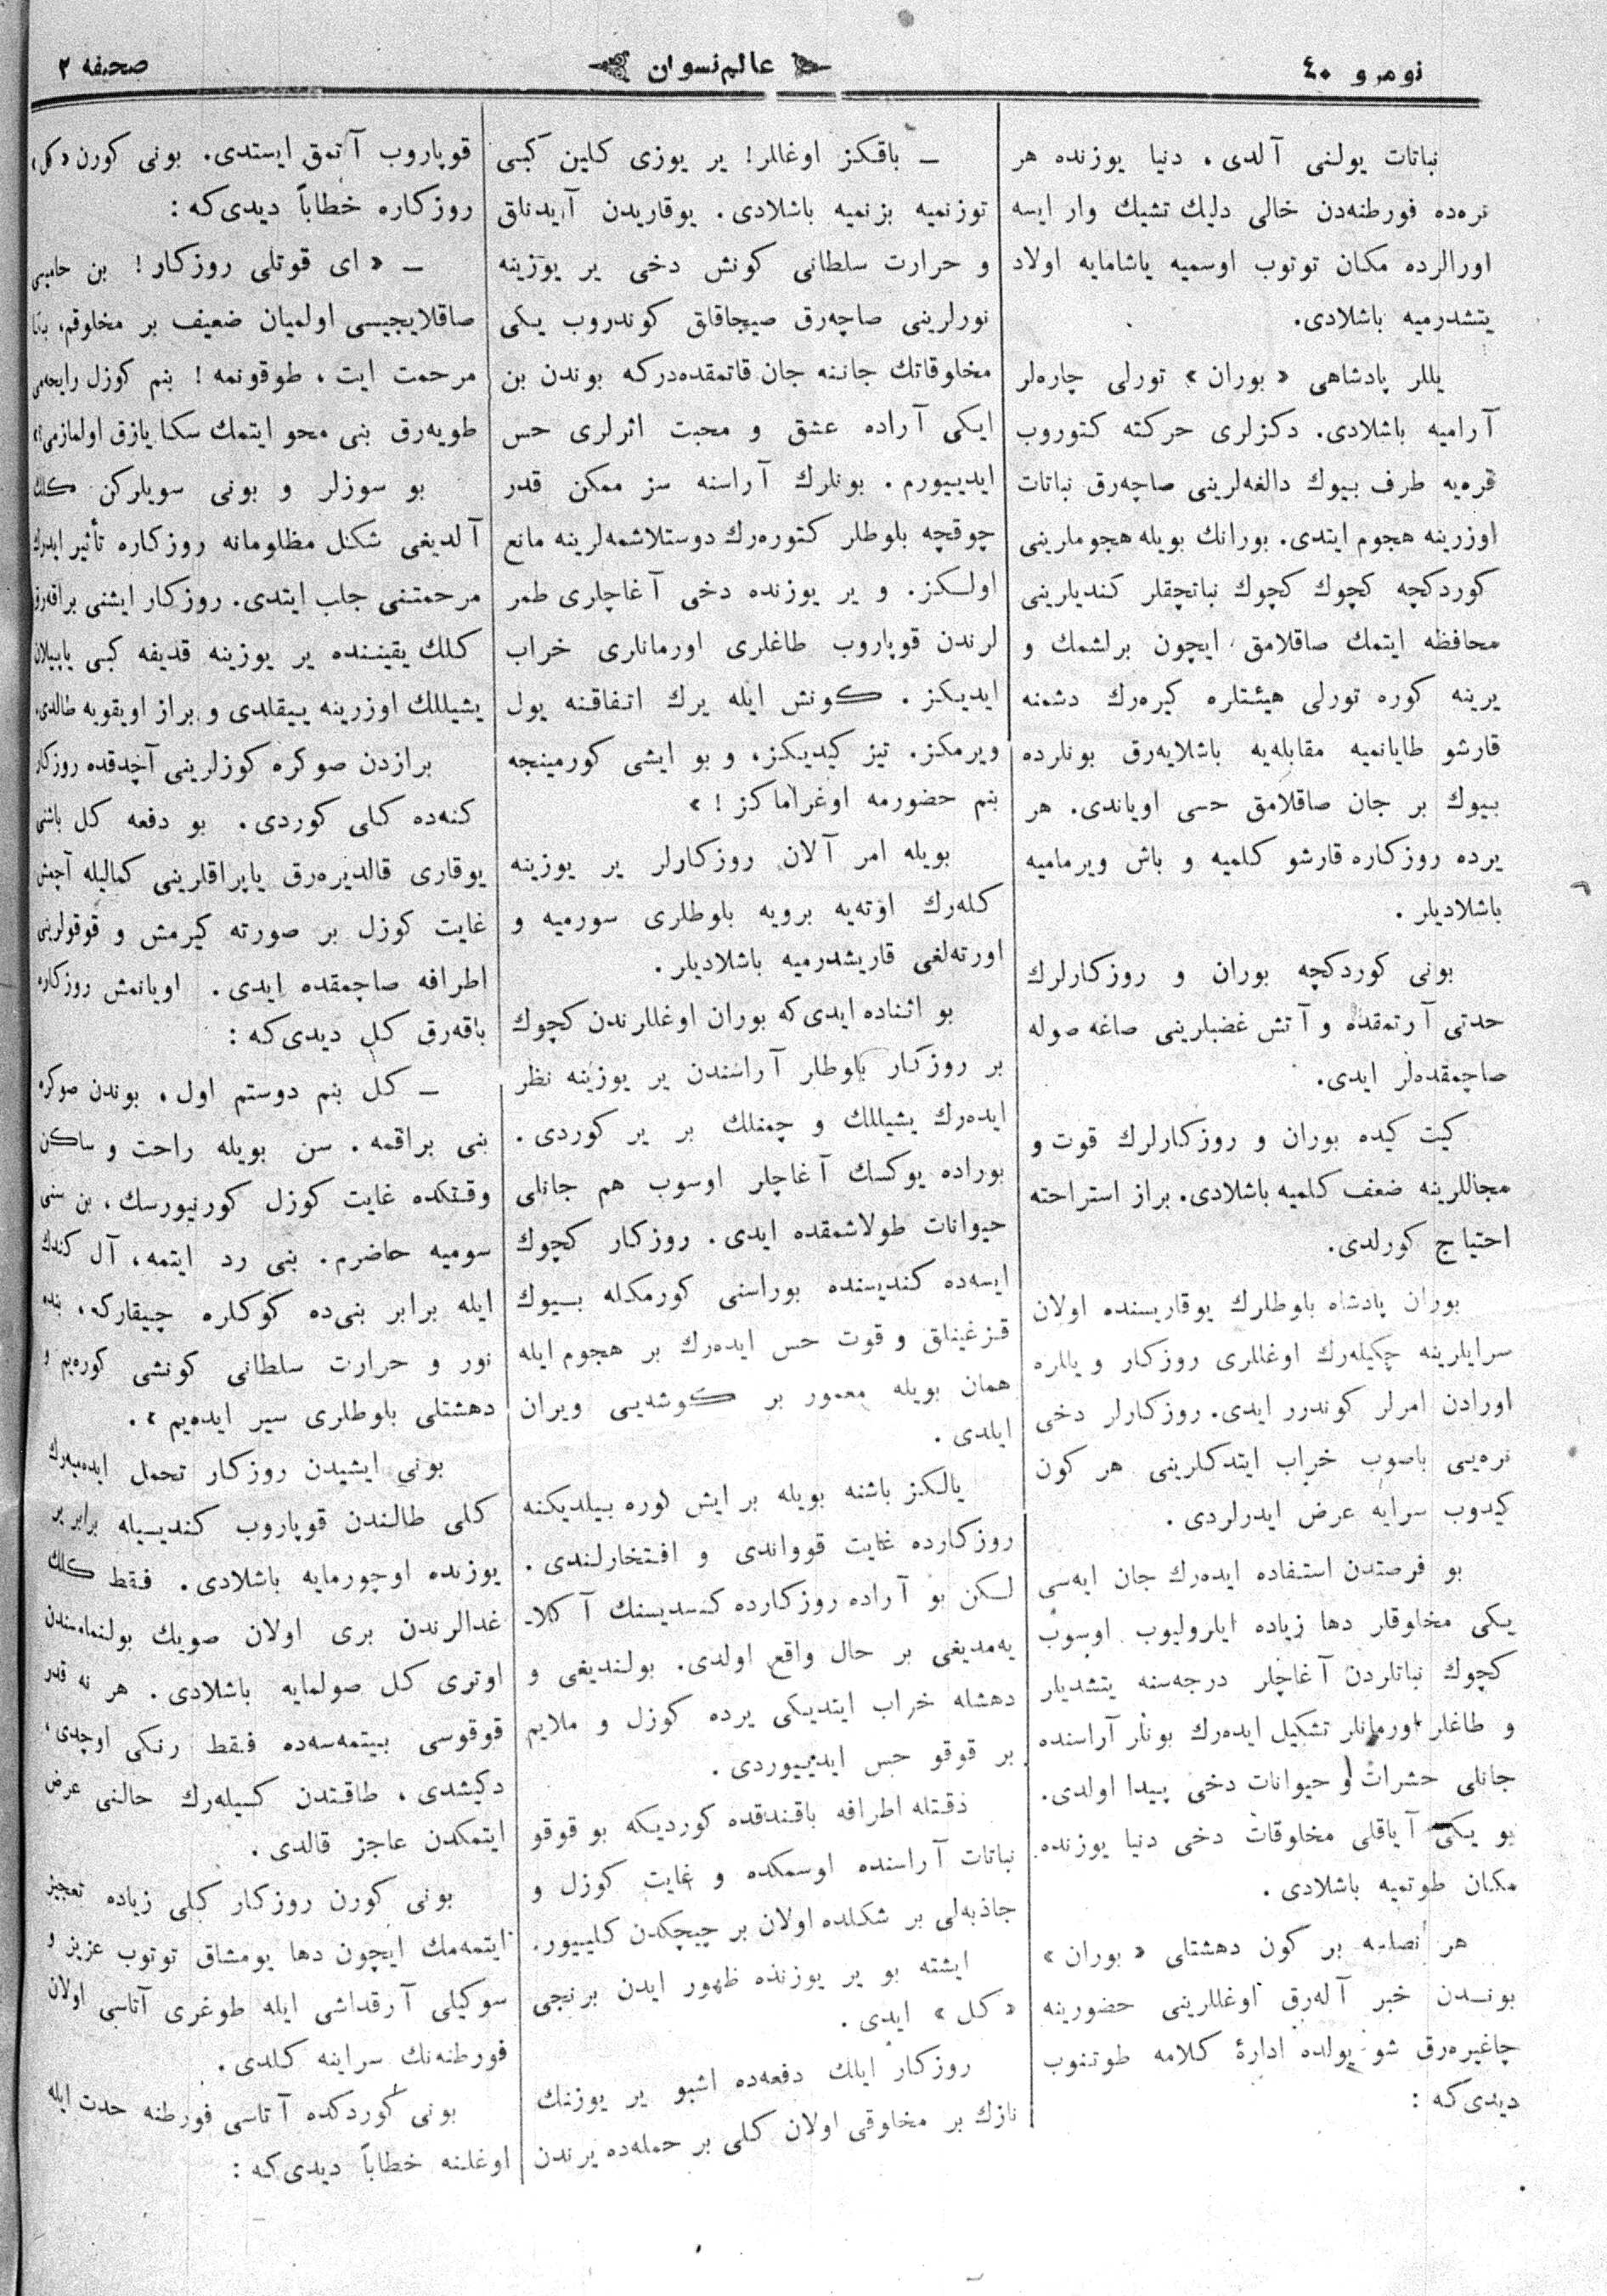 نومرو ٤٠
عالم نسوان
صحیفه ٢
نباتات یولنی آلدی. دنیا یوزنده هر
نره‌ده فورطنه‌دن خالی دلیك تشیك وار ایسه
اورالرده مکان توتوب اوسمیه یاشامایه اولاد
یتشدرمیه باشلادی.
یللر پادشاهی «بوران» تورلی چاره‌لر
آرامیه باشلادی. دکزلری حرکته کتوروب
قره‌یه طرف بیوك دالغه‌لرینی صاچه‌رق نباتات
اوزرینه هجوم ایتدی. بورانك بویله هجومارینی
کوردکچه کچوك کچوك نباتچقلر کندیلرینی
محافظه ایتمك صاقلامق ایچون برلشمك و
یرینه کوره تورلی هیئتلره کیره‌رك دشمنه
قارشو طایانمیه مقابله‌یه باشلایه‌رق بونلرده
بیوك بر جان صاقلامق حسی اویاندی. هر
یرده روزکاره قارشو کلمیه و باش ویرمامیه
باشلادیلر.
بونی کوردکچه بوران و روزکارلرك
حدتی آرتمقده و آتش غضبلرینی صاغه صوله
صاچمقده‌لر ایدی.
کیت کیده بوران و روزکارلرك قوت و
مجاللرینه ضعف کلمیه باشلادی. براز استراحته
احتیاج کورلدی.
بوران پادشاه بلوطلرك یوقاریسنده اولان
سرایلرینه چکیله‌رك اوغللری روزکار و یللره
اورادن امرلر کوندرر ایدی. روزکارلر دخی
نره‌یی باصوب خراب ایتدکلرینی هر کون
کیدوب سرایه عرض ایدرلردی.
بو فرصتدن استفاده ایده‌رك جان ایه‌سی
یکی مخلوقلر دها زیاده ایلرولیوب اوسوب
کچوك نباتلردن آغاچلر درجه‌سنه یتشدیلر
و طاغلر اورمانلر تشکیل ایده‌رك بونلر آراسنده
جانلی حشرات و حیوانات دخی پیدا اولدی.
بو یکی آیاقلی مخلوقات دخی دنیا یوزنده
مکان طوتمیه باشلادی.
هر نصلسه بر کون دهشتلی «بوران»
بونـدن خبر آله‌رق اوغللرینی حضورینه
چاغیره‌رق شو یولده ادارۀ کلامه طوتنوب
دیدی‌که :
— باقکز اوغللر! یر یوزی کلین کبی
توزنمیه بزنمیه باشلادی. یوقاریدن آیدنلق
و حرارت سلطانی کونش دخی یر یوزینه
نورلرینی صاچه‌رق صیجاقلق کوندروب یکی
مخلوقاتك جاننه جان قاتمقده‌درکه بوندن بن
ایکی آراده عشق و محبت اثرلری حس
ایدییورم. بونلرك آراسنه سز ممکن قدر
چوقچه بلوطلر کتوره‌رك دوستلاشمه‌لرینه مانع
اولـکز. و یر یوزنده دخی آغاچلری طمر
لرندن قوپاروب طاغلری اورمانلری خراب
ایدیکز. کونش ایله یرك اتفاقنه یول
ویرمکز. تیز کیدیکز، و بو ایشی کورمینجه
بنم حضورمه اوغراماکز! »
بویله امر آلان روزکارلر یر یوزینه
کله‌رك اوته‌یه برویه بلوطلری سورمیه و
اورته‌لغی قاریشدرمیه باشلادیلر.
بو اثناده ایدی‌که بوران اوغللرندن کچوك
بر روزکار بلوطلر آراسندن یر یوزینه نظر
ایده‌رك یشیللك و چمنلك بر یر کوردی.
بوراده یوکسك آغاچلر اوسوب هم جانلی
حیوانات طولاشمقده ایدی. روزکار کچوك
ایسه‌ده کندیسنده بوراسنی کورمکله بـیوك
قـزغینلق و قوت حس ایده‌رك بر هجوم ایله
همان بویله معمور بر کوشه‌یی ویران
ایلدی.
یالکز باشنه بویله بر ایش کوره بیلدیکنه
روزکارده غایت قوواندی و افتخارلندی.
لـکن بو آراده روزکارده کنـدیسنك آکلا-
یه‌مدیغی بر حال واقع اولدی. بولندیغی و
دهشله خراب ایتدیکی یرده کوزل و ملایم
بر قوقو حس ایدییوردی.
دقتله اطرافه باقندقده کوردیکه بو قوقو
نباتات آراسنده اوسمکده و غایت کوزل و
جاذبه‌لی بر شکلده اولان بر چیچکدن کلییور.
ایشته بو یر یوزنده ظهور ایدن برنجی
«کل» ایدی.
روزکار ایلك دفعه‌ده اشبو یر یوزنك
نازك بر مخلوقی اولان کلی بر حمله‌ده یرندن
قوپاروب آتمق ایستدی. بونی کورن «کل»
روزکاره خطاباً دیدی‌که :
— «ای قوتلی روزکار! بن حامیسی
صاقلایجیسی اولمیان ضعیف بر مخلوقم، بکا
مرحمت ایت، طوقونمه! بنم کوزل رایحه‌می
طویه‌رق بنی محو ایتمك سکا یازق اولمازمی؟»
بو سوزلر و بونی سویلرکن کلك
آلدیغی شکل مظلومانه روزکاره تأثیر ایدرك
مرحمتنی جلب ایتدی. روزکار ایشنی براقه‌رق
کلك یقیننده یر یوزینه قدیفه کبی یاپیلان
یشیللك اوزرینه ییقلدی و براز اویقویه طالدی.
برازدن صوکره کوزلرینی آچدقده روزکار
کنه‌ده کلی کوردی. بو دفعه کل باشنی
یوقاری قالدیره‌رق یاپراقلرینی کمالیله آچمش
غایت کوزل بر صورته کیرمش و قوقولرینی
اطرافه صاچمقده ایدی. اویانمش روزکاره
باقه‌رق کل دیدی‌که :
— کل بنم دوستم اول. بوندن صوکره
بنی براقمه. سن بویله راحت و ساکن
وقتکده غایت کوزل کورنیورسك، بن سنی
سومیه حاضرم. بنی رد ایتمه، آل کندك
ایله برابر بنی‌ده کوکلره چیقارکه، بنده
نور و حرارت سلطانی کونشی کوره‌یم و
دهشتلی بلوطلری سیر ایده‌یم ».
بونی ایشیدن روزکار تحمل ایده‌میه‌رك
کلی طالندن قوپاروب کندیسیله برابر یر
یوزنده اوچورمایه باشلادی. فقط کلك
غدالرندن بری اولان صویك بولنمامه‌سندن
اوتری کل صولمایه باشلادی. هر نه قدر
قوقوسی بیتمه‌سه‌ده فقط رنکی اوچدی،
دکیشدی، طاقتدن کسیله‌رك حالنی عرض
ایتمکدن عاجز قالدی.
بونی کورن روزکار کلی زیاده تعجیز
ایتمه‌مك ایچون دها یومشاق توتوب عزیز و
سوکیلی آرقداشی ایله طوغری آتاسی اولان
فورطنه‌نك سراینه کلدی.
بونی کوردکده آتاسی فورطنه حدت ایله
اوغلنه خطاباً دیدی‌که :